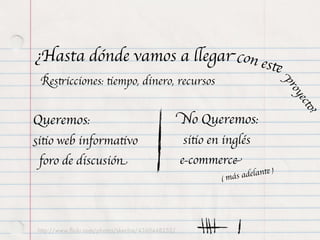 ¿Hasta dónde vamos a llegar con este proyecto?
Restricciones: tiempo, dinero, recursos
Queremos:
sitio web informativo
foro de discusión
No Queremos:
sitio en inglés
e-commerce
(más adelante)